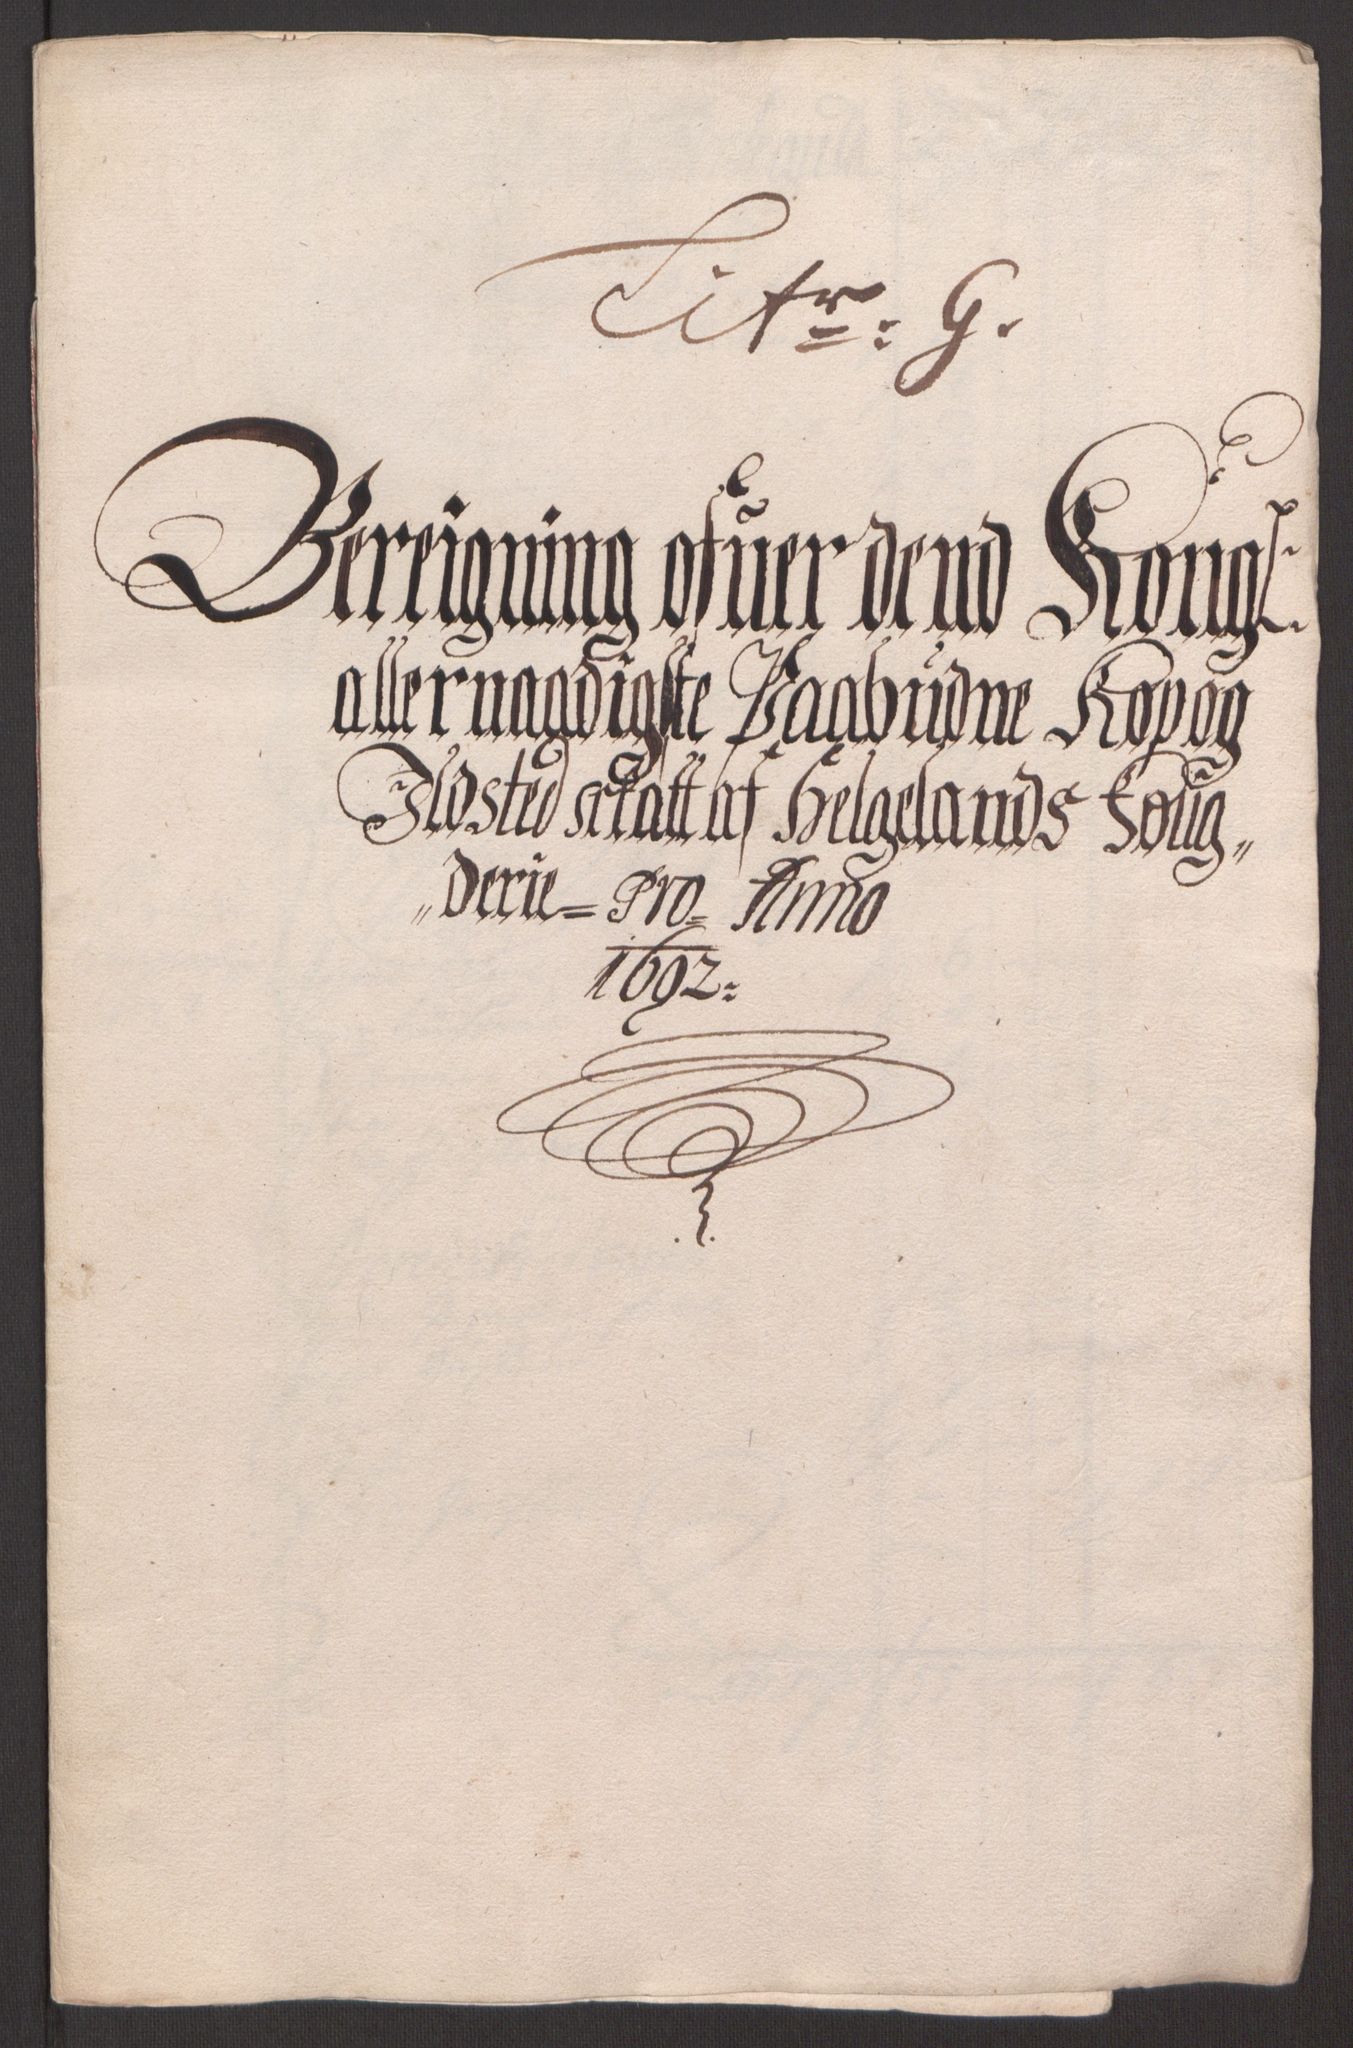 Litr: G.
Bereigning ofuer dend Kongl:
allernaadigste Paabudne Kop og
Ildsted schatt af Helgelands Foug„
„derie= Pro= Anno
1692: